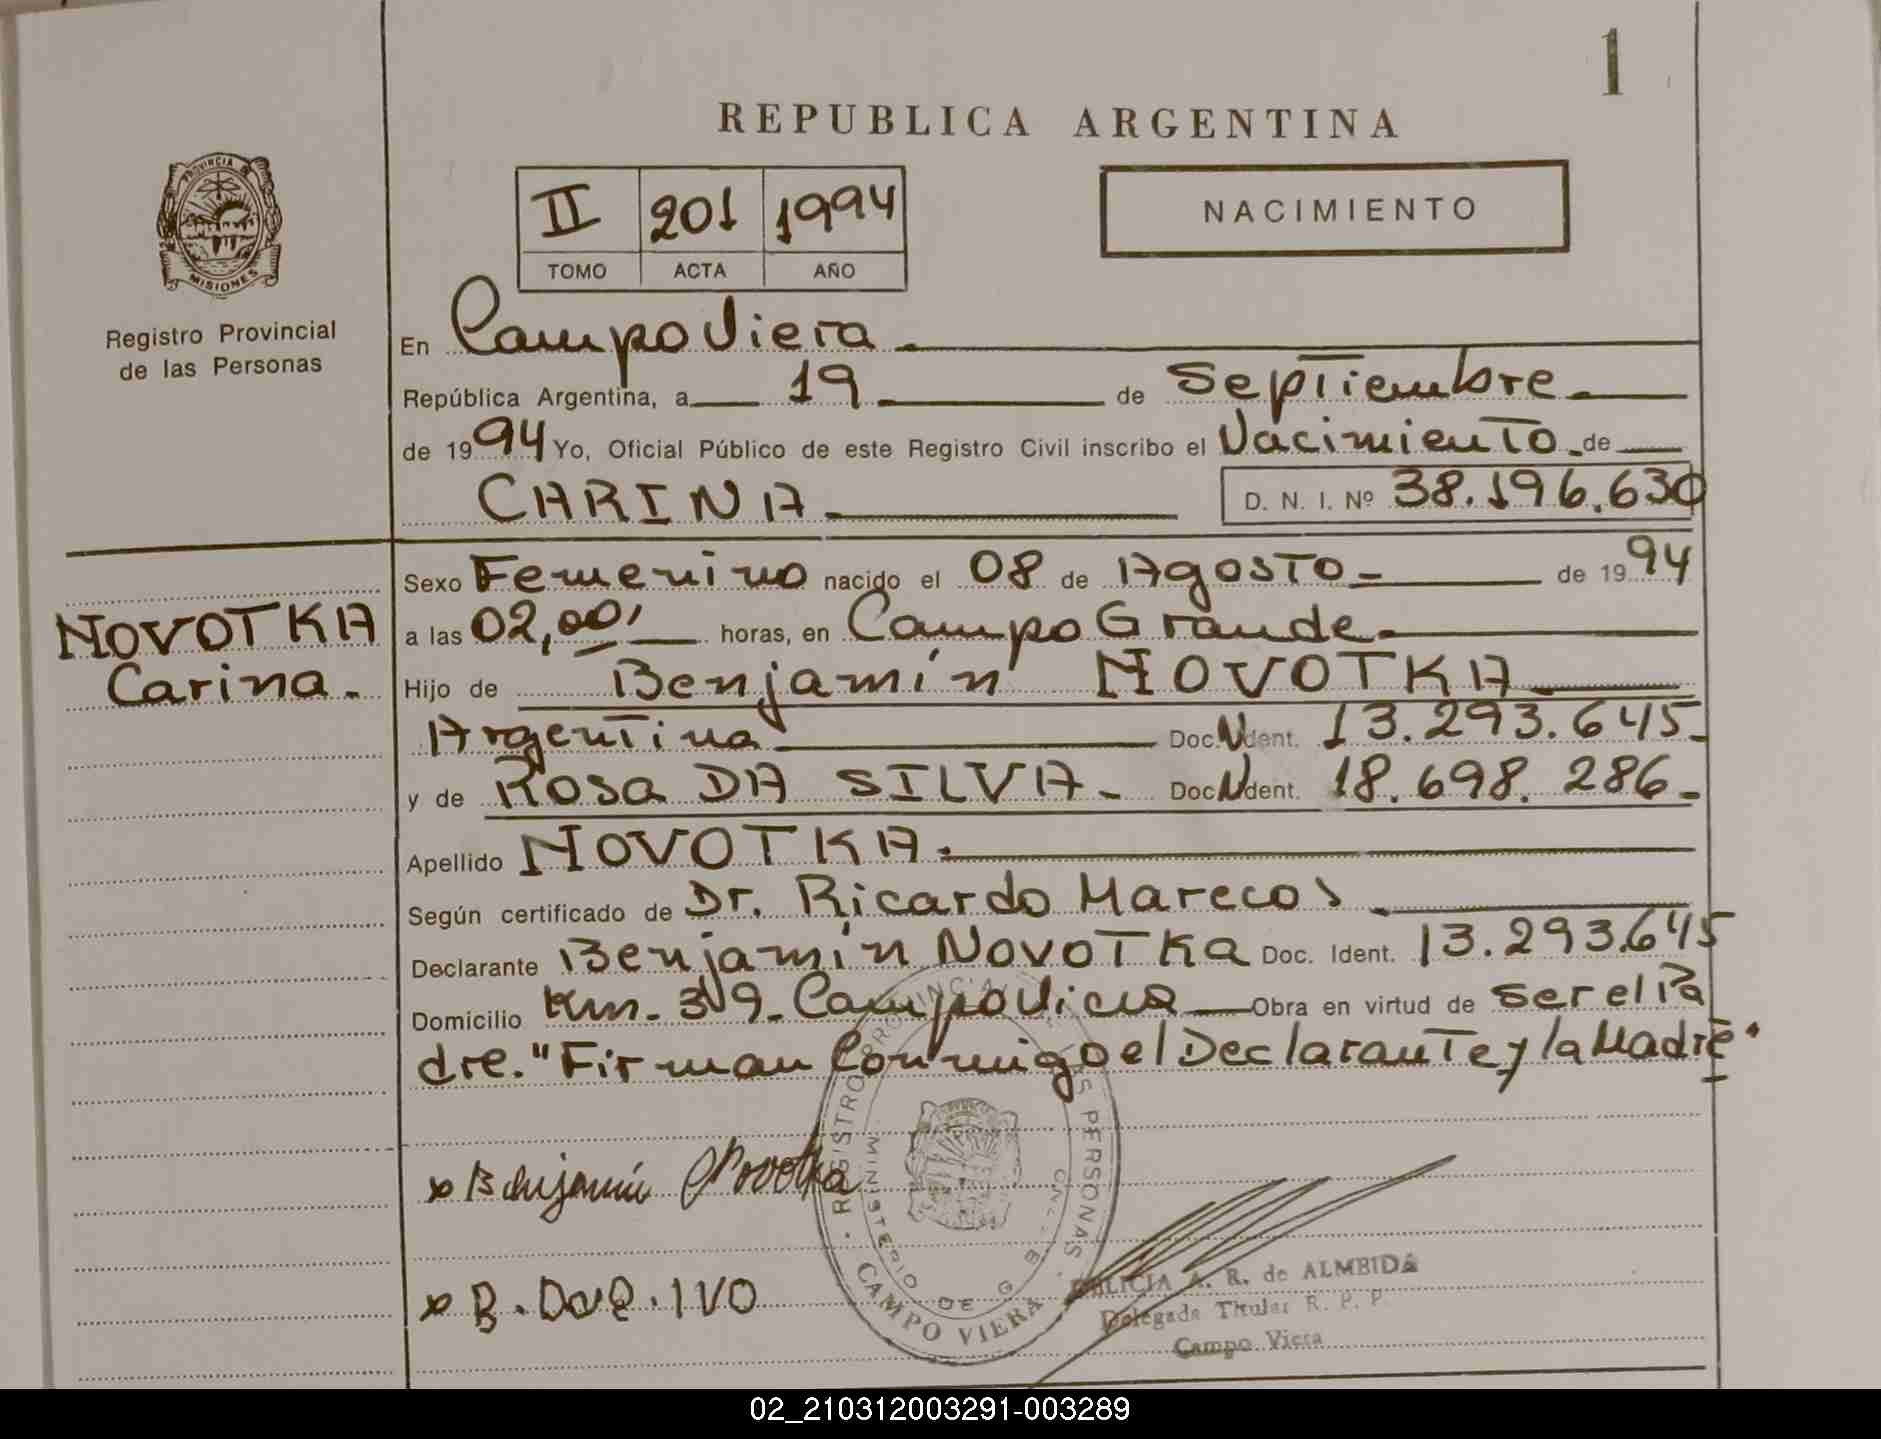 1
REPUBLICA ARGENTINA
II 201 1994
TOMO ACTA AÑO
NACIMIENTO
PROVINCIA
MISIONES
Registro Provincial
de las Personas
En Campo Viera
República Argentina, a 19 de Septiembre
de 1994 Yo, Oficial Público de este Registro Civil inscribo el Nacimiento de
CARINA D. N. I. Nº 38.196.630
Sexo Femenino nacido el 08 de Agosto de 1994
NOVOTKA
Carina.
a las 02,00' horas, en Campo Grande
Hijo de Benjamín NOVOTKA
Argentina Doc. Ident. 13.293.645
y de Rosa DA SILVA Doc. Ident. 18.698.286
Apellido NOVOTKA
Según certificado de Dr. Ricardo Marecos
Declarante Benjamín Novotka Doc. Ident. 13.293.645
Domicilio Km. Campo Viera Obra en virtud de ser el Pa
dre. "Firman Conmigo el Declarante y la Madre"
REGISTRO PROVINCIAL PERSONAS
MINISTERIO DE G
CAMPO VIERA
x Benjamín Novotka
x
A. R. de ALMEIDA
Delegada Titular R. P. P.
Campo Viera
02_210312003291-003289